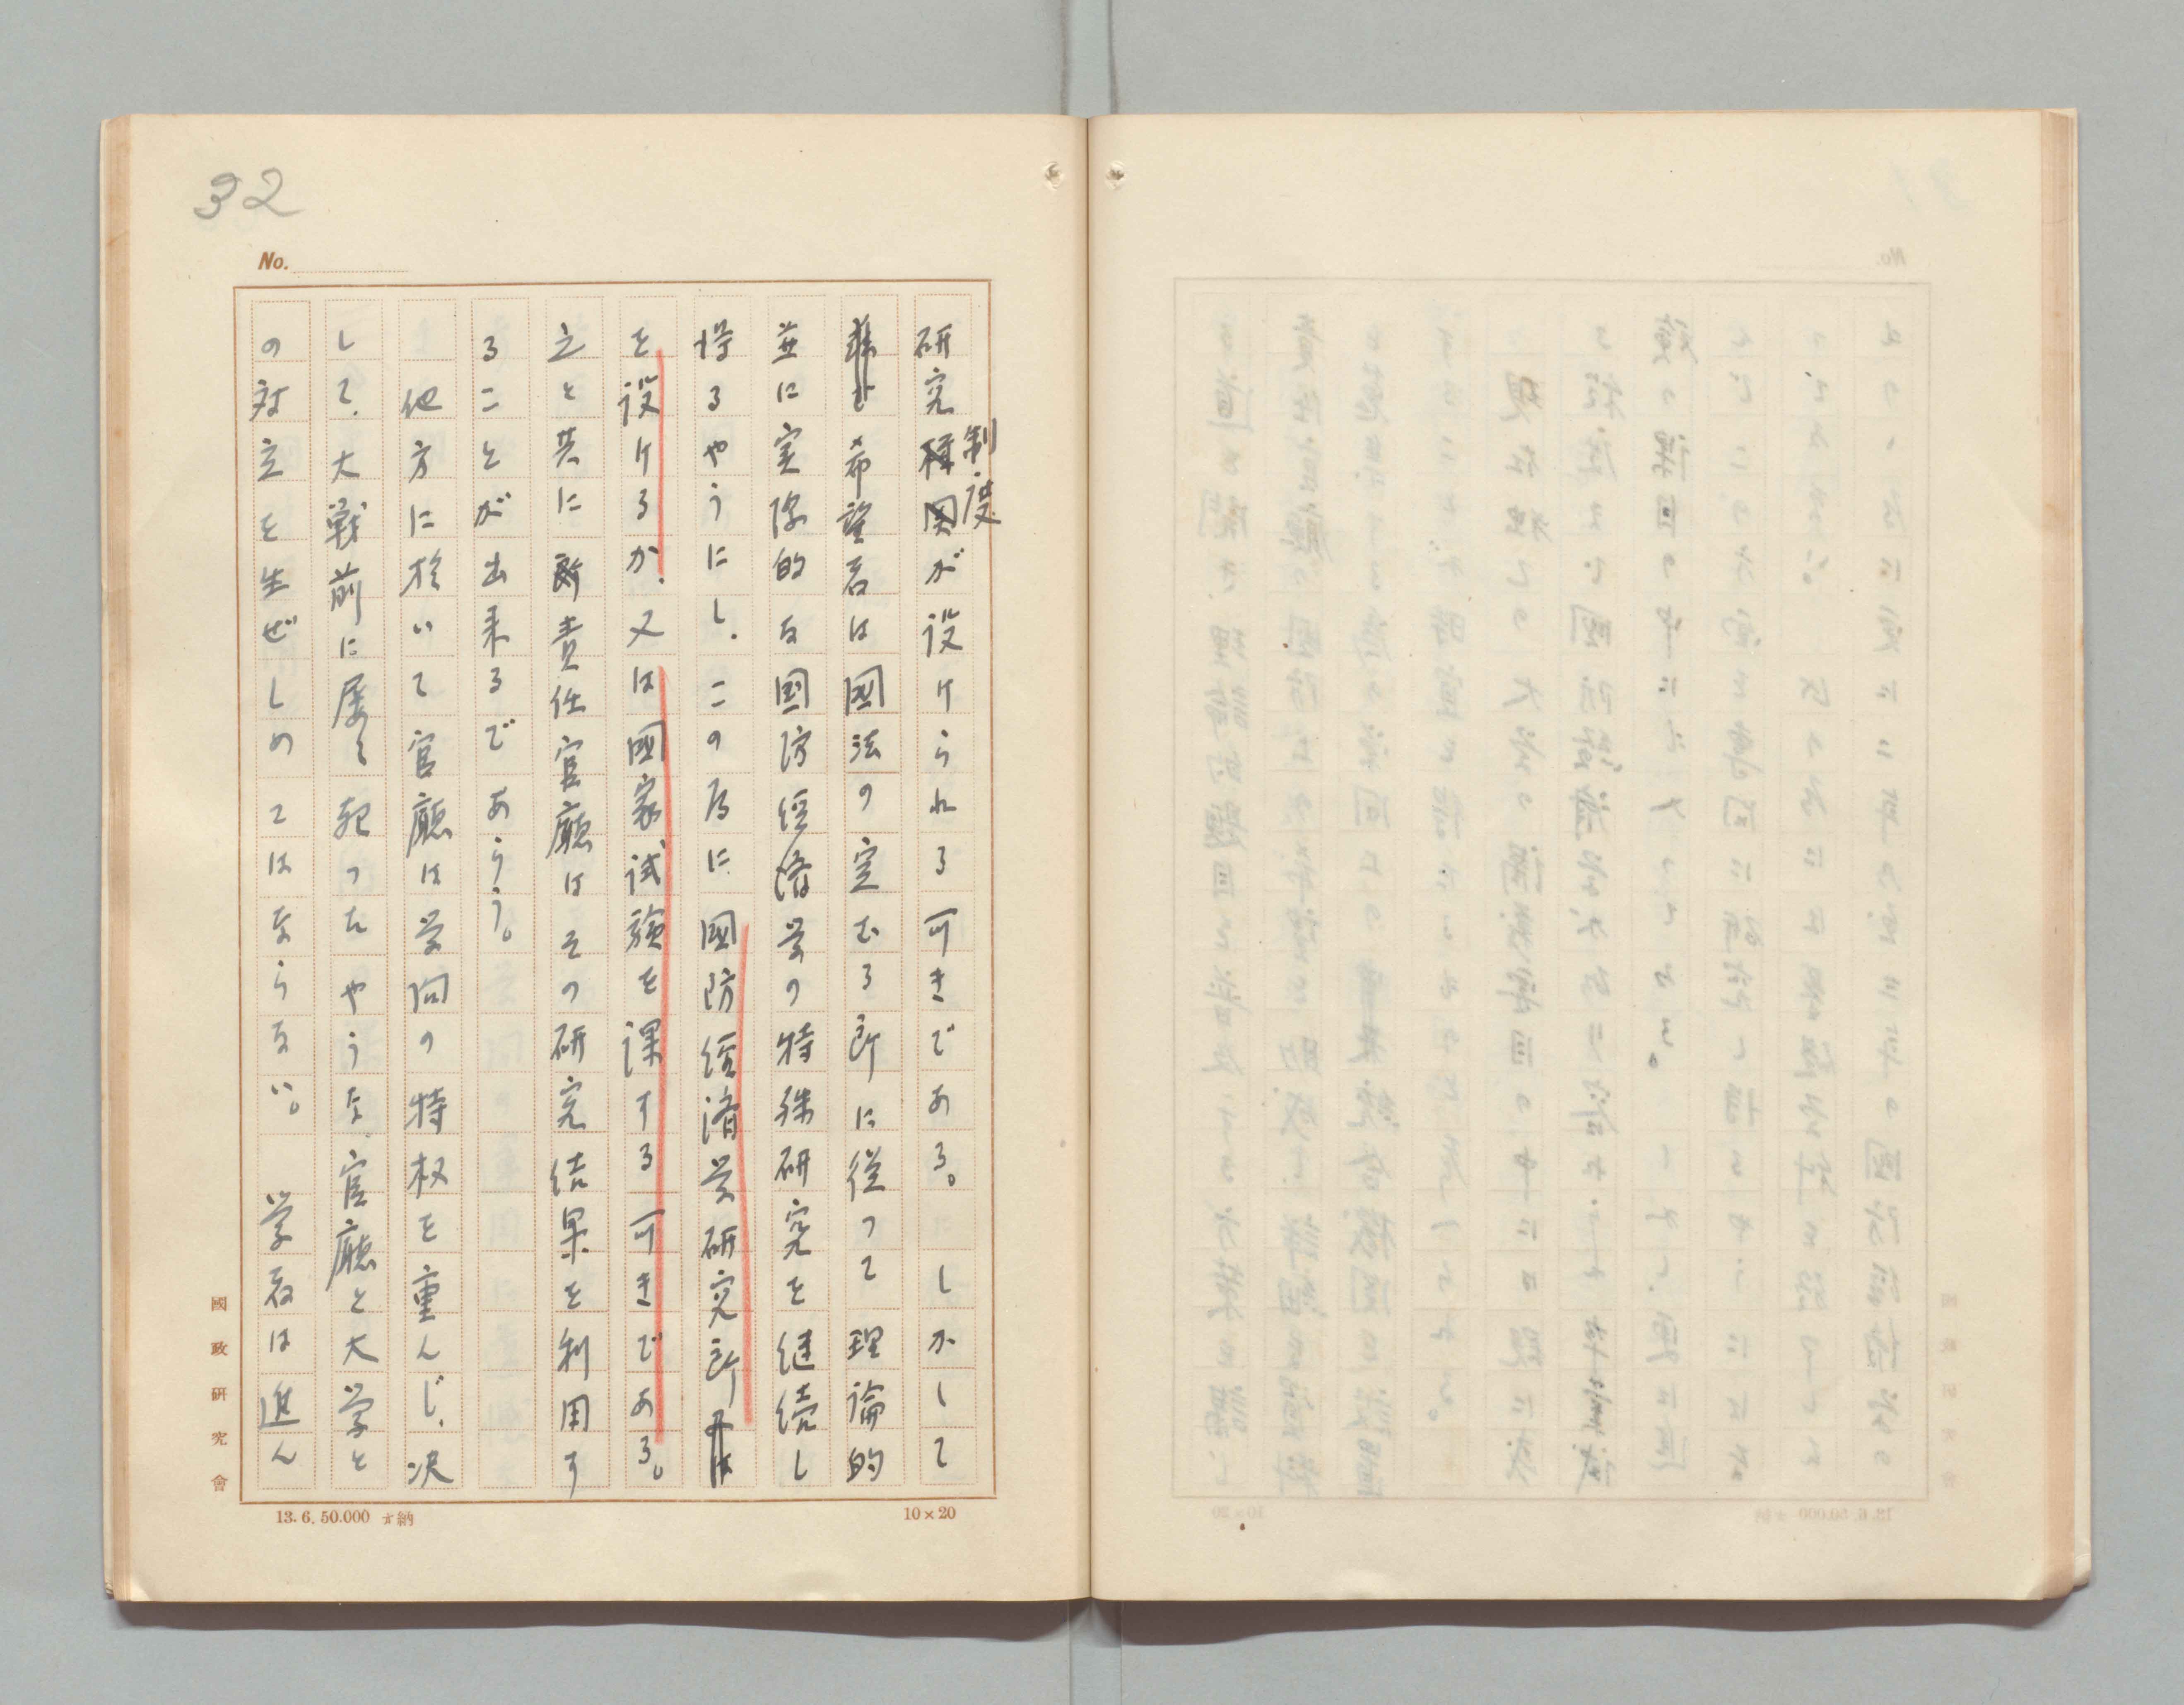 32
No.
制度
研究機関が設けられる可きである。しかして
希望者は國法の定むる所に従つて理論的
並に実際的な国防経済学の特殊研究を継続し
得るやうにし、この為に國防経済学研究所
を設けるか、又は國家試験を課する可きである。
之と共に所責任官廳はその研究結果を利用す
ることが出来るであらう。
他方に於いて官廳は学問の特权を重んじ、决
して、大戦前に屡々起つたやうな官廳と大学と
の対立を生ぜしめてはならない。学者は進ん
國政研究會
13.6.50.000 納
10×20